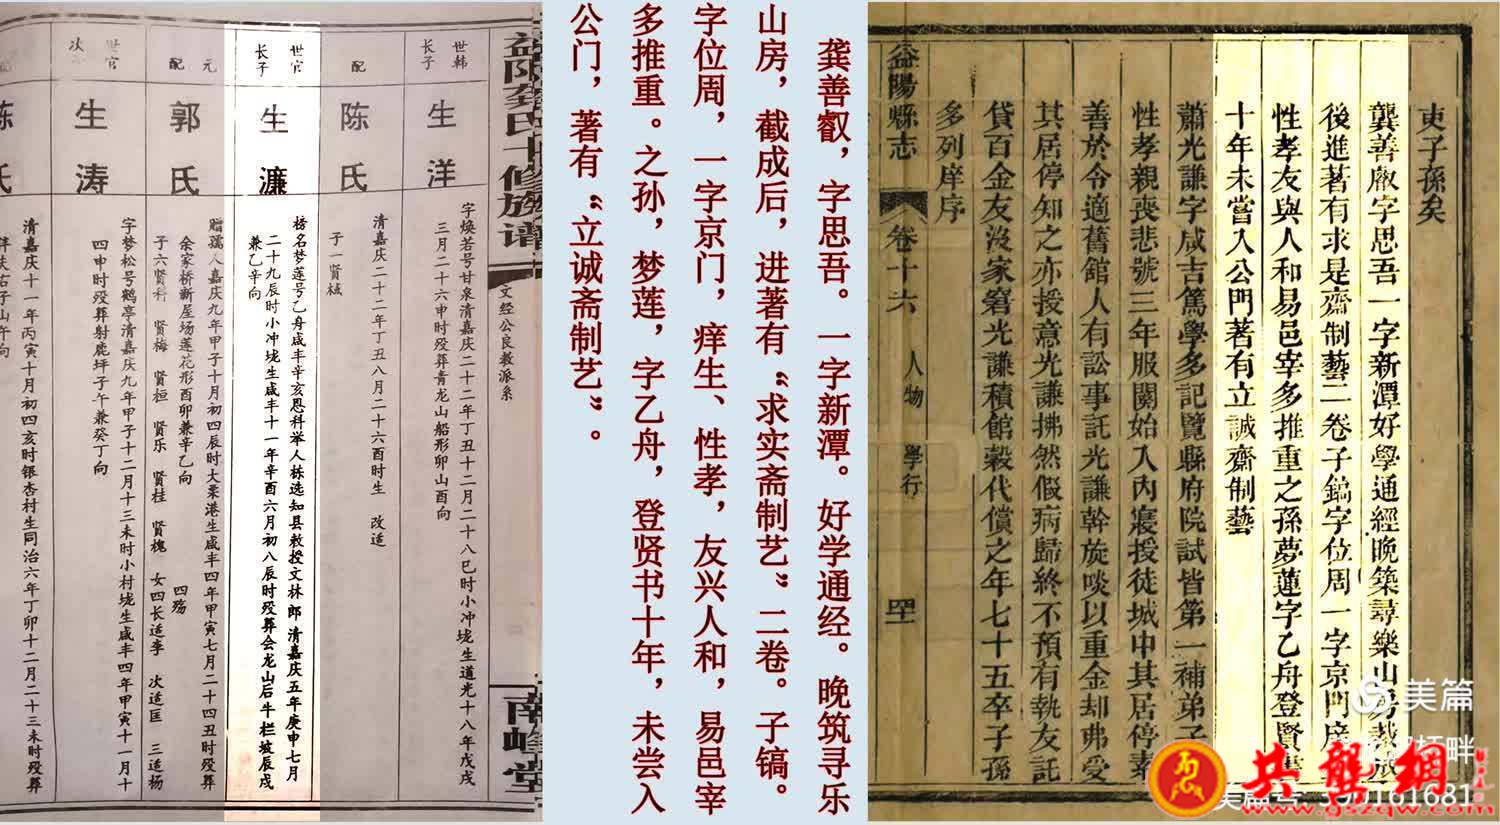 吏子孫矣
龔善敞字思吾一字新潭好學通經晚築尋樂山房裁成
後進著有求是齋制藝二卷子鎬字位周一字京門庠
性孝友與人和易邑宰多推重之孫夢蓮字乙舟登賢書
十年未嘗入公門著有立誠齋制藝
蕭光謙字咸吉篤學多記覽縣府院試皆第一補弟子
性孝親喪悲號三年服闋始入內寢授徒城中其居停素
善於令適舊館人有訟事託光謙幹旋啖以重金却弗受
其居停知之亦授意光謙拂然假病歸終不預有執友託
貸百金友沒家窘光謙積館穀代償之年七十五卒子孫
多列庠序
益陽縣志 卷十六 人物 學行
龚善叡，字思吾。一字新潭。好学通经。晚筑寻乐
山房，截成后，进著有“求实斋制艺”二卷。子镐。
字位周，一字京门，痒生、性孝，友兴人和，易邑宰
多推重。之孙，梦莲，字乙舟，登贤书十年，未尝入
公门，著有“立诚斋制艺”。
益阳龚氏十修族谱 文经公良教派系 南峰堂
世韩长子
生洋
字焕若号甘泉清嘉庆二十二年丁丑十二月二十八巳时小冲垅生道光十八年戊戌
三月二十六申时殁葬青龙山船形卯山酉向
配
陈氏
清嘉庆二十二年丁丑八月二十六酉时生 改适
子一贤棫
世官长子
生濂
榜名梦莲号乙舟咸丰辛亥恩科举人栋选知县敕授文林郎清嘉庆五年庚申七月
二十九辰时小冲垅生咸丰十一年辛酉六月初八辰时殁葬会龙山后牛栏坡辰戌
兼乙辛向
元配
郭氏
赠孺人嘉庆九年甲子十月初四辰时大泉港生咸丰四年甲寅七月二十四丑时殁葬
余家桥新屋场莲花形酉卯兼辛乙向 四殇
子六贤科 贤梅 贤桓 贤乐 贤桂 贤槐 女四长适李 次适匡 三适杨
世官次
生涛
字梦松号鹤亭清嘉庆九年甲子十二月十三未时小村垅生咸丰四年甲寅十一月十
四申时殁葬射鹿坪子午兼癸丁向
陈氏
清嘉庆十一年丙寅十月初四亥时银杏村生同治六年丁卯十二月二十三未时殁葬
美篇
共龚網
www.gszqw.com